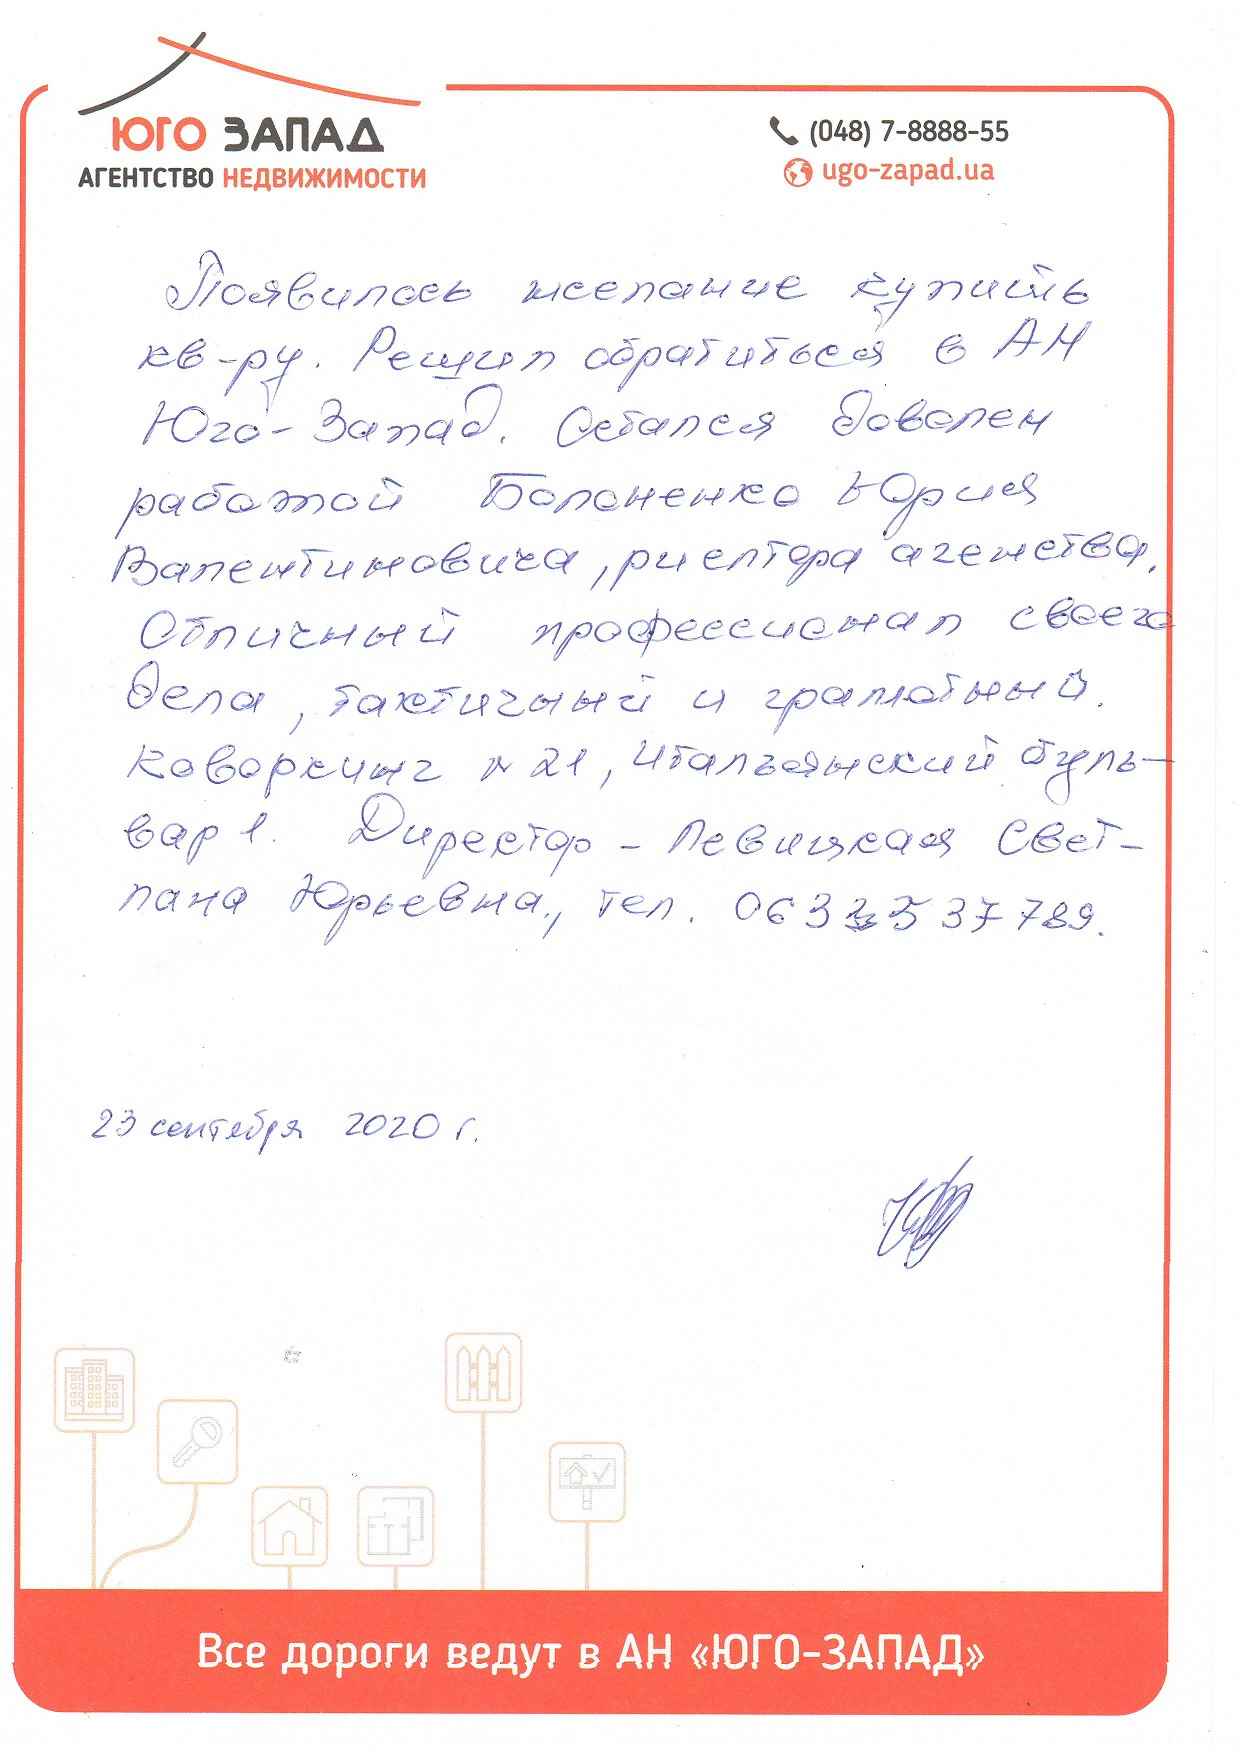 ЮГО ЗАПАД
АГЕНТСТВО НЕДВИЖИМОСТИ
(048) 7-8888-55
ugo-zapad.ua
Появилось желание купить
кв-ру. Решил обратиться в АН
Юго-Запад. Остался доволен
работой Болоненко Юрия
Валентиновича, риелтора агенства.
Отличный профессионал своего
дела, тактичный и грамотный.
Коворкинг N 21, Итальянский буль-
вар 1. Директор - Левицкая Свет-
лана Юрьевна, тел. 0633537789.
23 сентября 2020 г.
Все дороги ведут в АН «ЮГО-ЗАПАД»